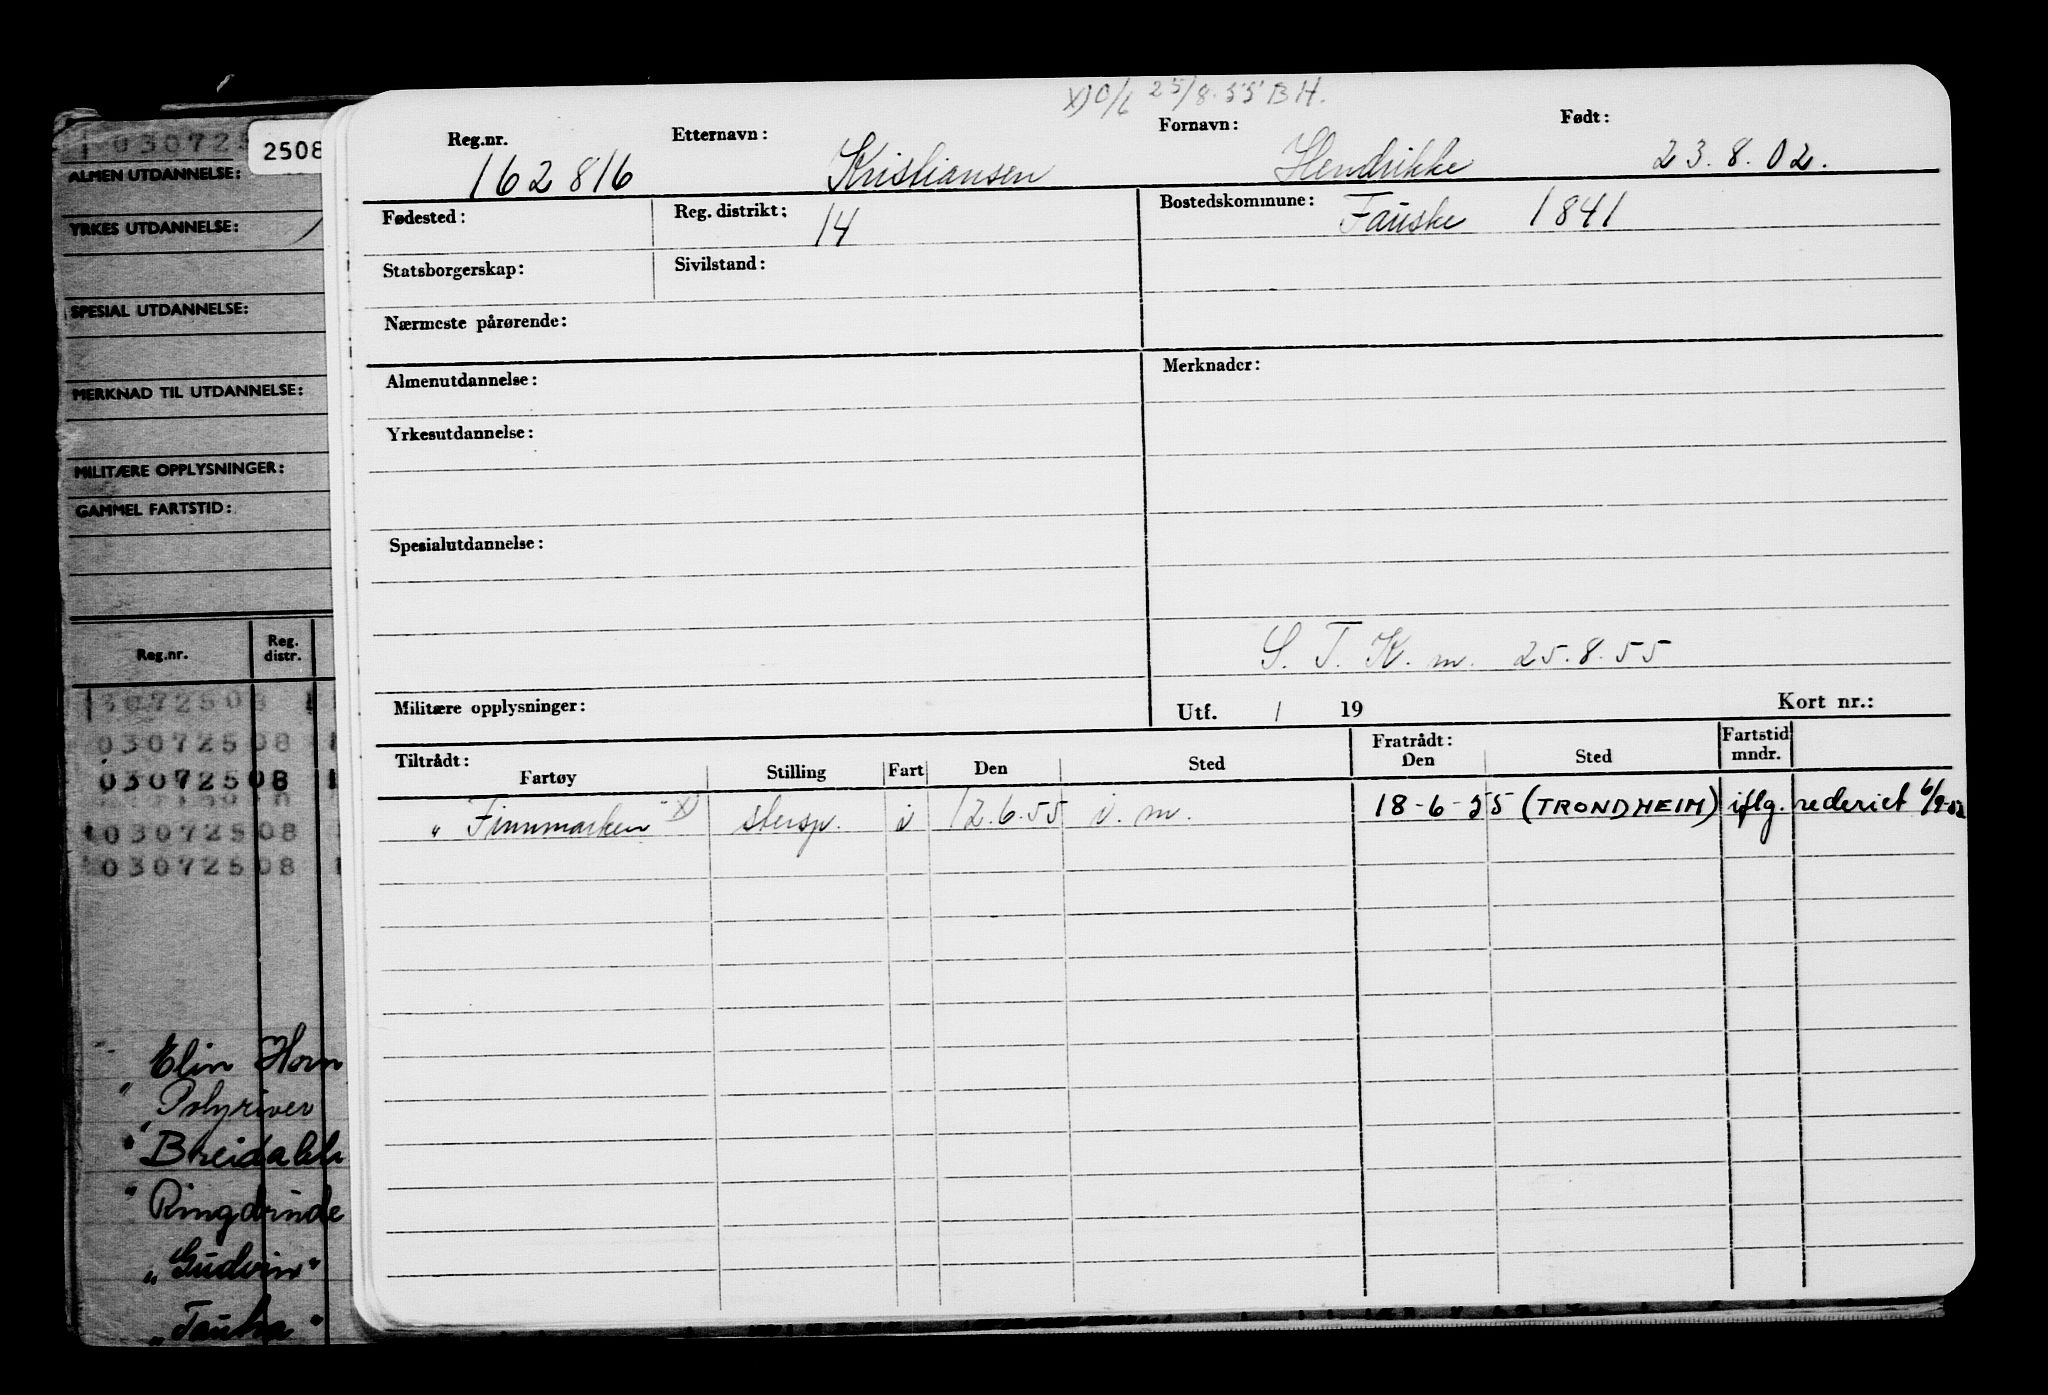 x) O/L 25/8-55 B H.
Reg.nr. Etternavn: Fornavn: Født:
162816 Kristiansen Hendrikke 23.8.02.
Fødested: Reg. distrikt: 14 Bostedskommune: Fauske 1841
Statsborgerskap: Sivilstand:
Nærmeste pårørende:
Almenutdannelse: Merknader:
Yrkesutdannelse:
Spesialutdannelse:
S. T. K. m. 25.8.55
Militære opplysninger: Utf. / 19 Kort nr.:
Tiltrådt: Fratrådt: Fartstid
Fartøy Stilling Fart Den Sted Den Sted mndr.
" Finnmarken" x) stersp. i 12.6.55 i. m. 18-6-55 (TRONDHEIM) iflg. rederiet
030725
2508
ALMEN UTDANNELSE:
YRKES UTDANNELSE:
SPESIAL UTDANNELSE:
MERKNAD TIL UTDANNELSE:
MILITÆRE OPPLYSNINGER:
GAMMEL FARTSTID:
Reg.nr. Reg. distr.
03072508
03072508
03072508
03072508
03072508
Elin Horn
" Polyriver
" Breidablik
" Ringdrude
"Gudvin"